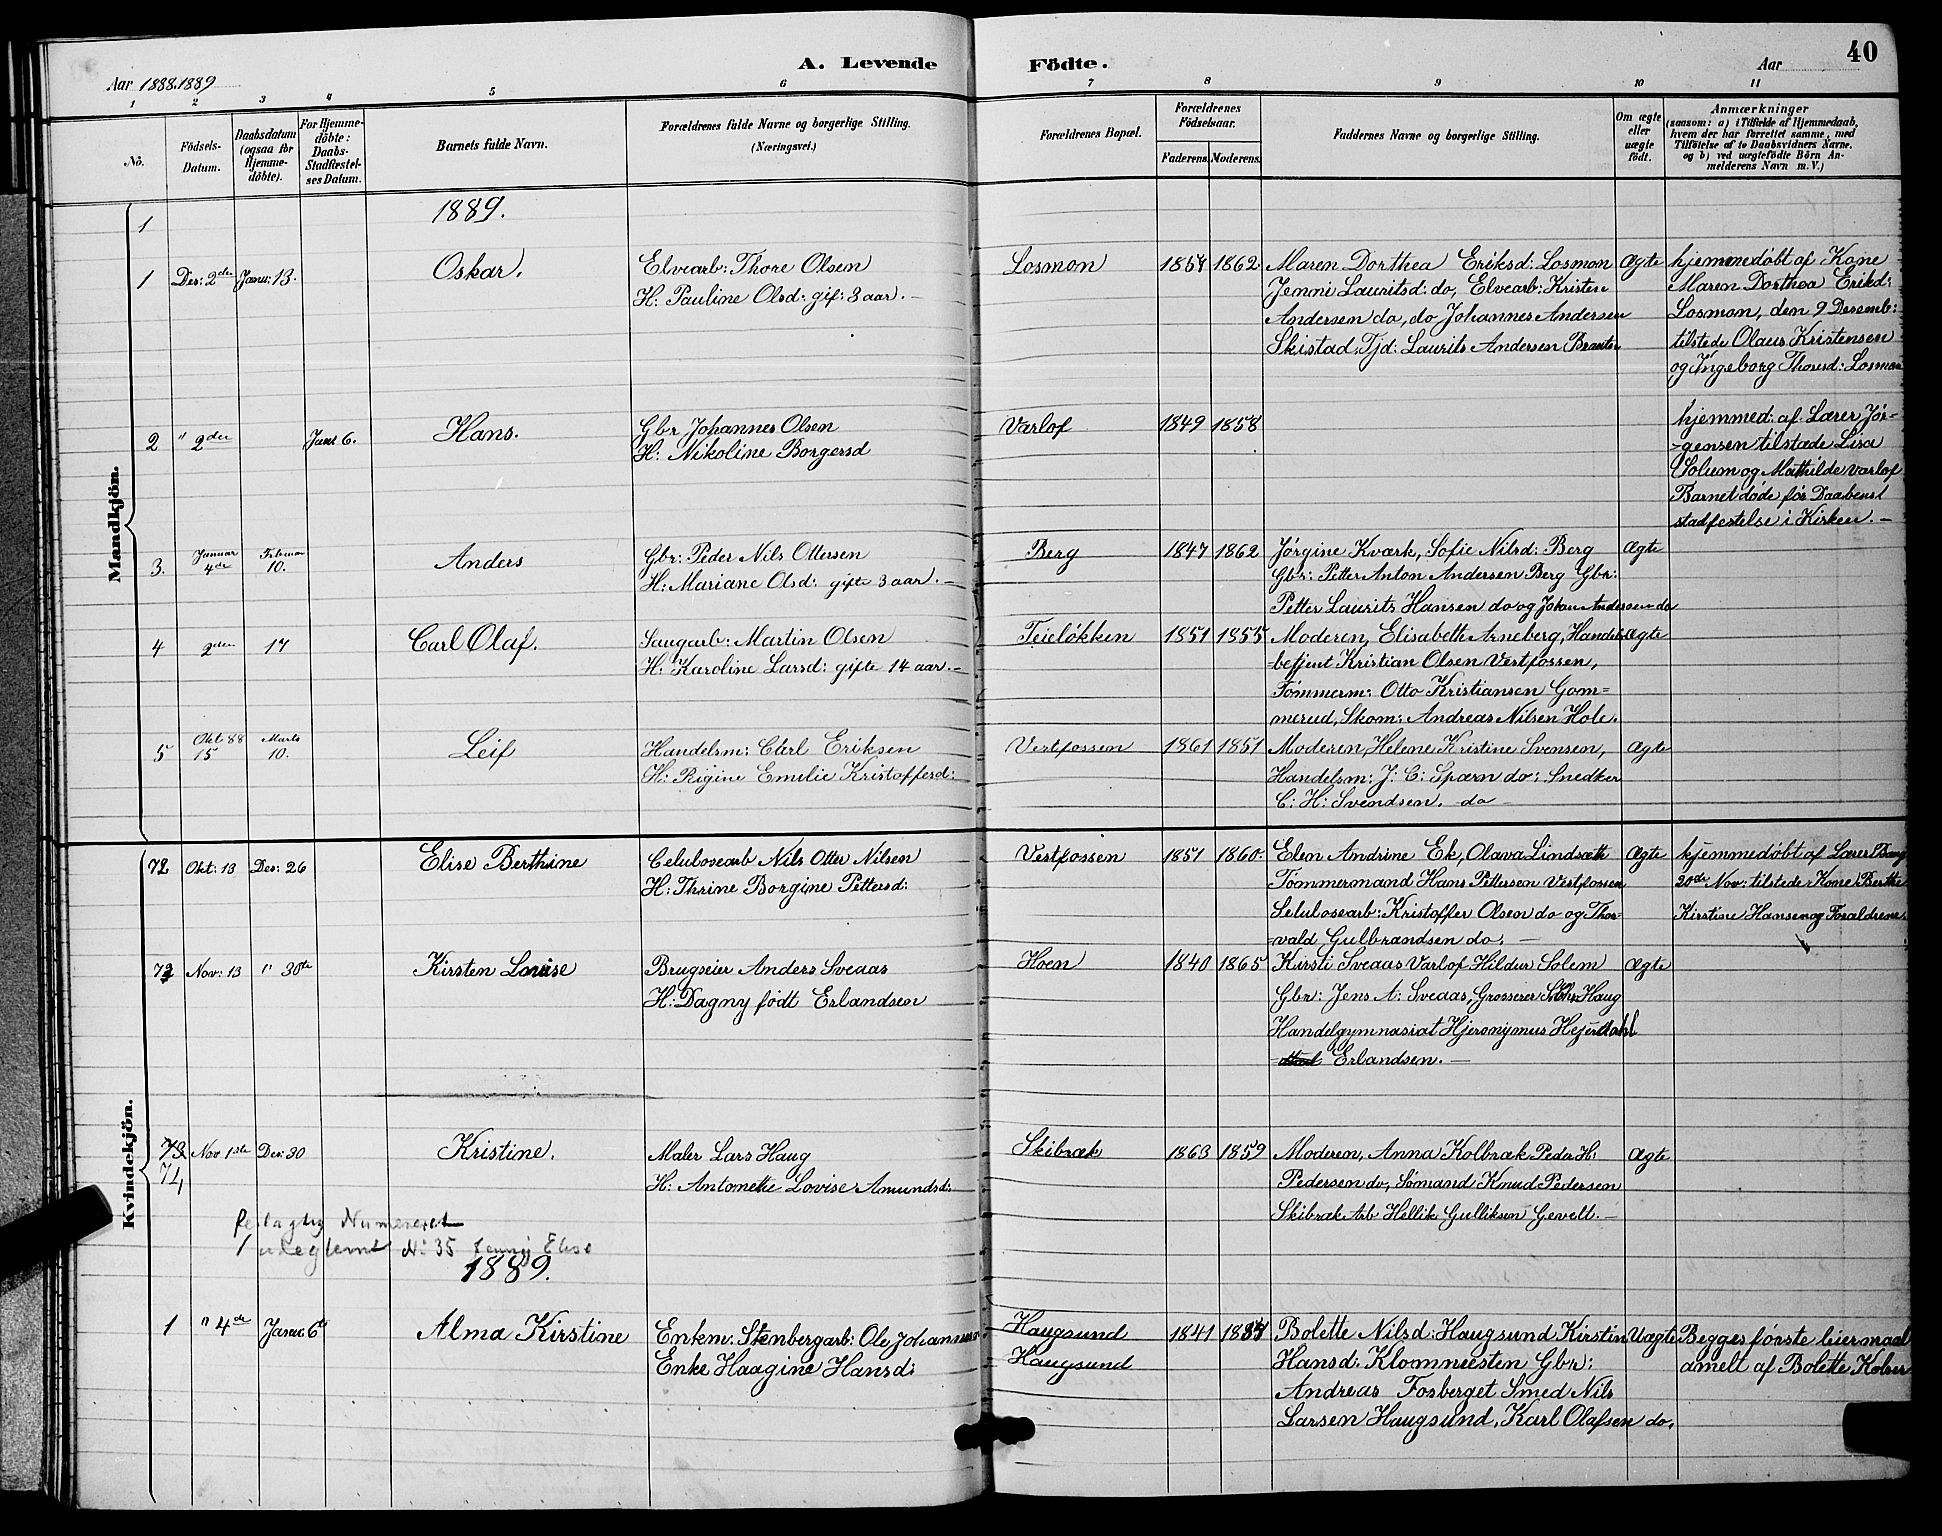 40
Aar 1888.1889
A. Levende Födte.
Aar
1 2 3 4 5 6 7 8 9 10 11
No.
Födsels-
Datum.
Daabsdatum
(ogsaa for
Hjemme-
döbte).
For Hjemme-
döbte:
Daabs-
Stadfæstel-
ses Datum.
Barnets fulde Navn.
Forældrenes fulde Navne og borgerlige Stilling.
(Næringsvei.)
Forældrenes Bopæl.
Forældrenes
Födselsaar.
Faderens. Moderens.
Faddernes Navne og borgerlige Stilling.
Om ægte
eller
uægte
födt.
Anmærkninger
(saasom: a) i Tilfælde af Hjemmedaab,
hvem der har forrettet samme, med
Tilföielse af to Daabsvidners Navne.
og b) ved uægtefödte Börn An-
melderens Navn m.V.)
Mandkjön.
1
1889.
1 Des: 2de Janu: 13. Oskar. Elvearb: Thore Olsen Losmon 1857 1862 Maren Dorthea Eriksd: Losmon Ægte hjemmedøbt af Kone
H: Pauline Olsd: gif: 8 aar. — Jenni Lauritsd: do, Elvearb: Kristen Maren Dorthea Erikd:
Andersen do, do Johannes Andersen Losmon, den 9 Desemb:
Skistad, Tjd: Laurits Andersen tilstede Olaus Kristensen
og Ingeborg Thoresd: Losmon
2 " 2den Janr 6. Hans. Gbr Johannes Olsen Varlof 1849 1858 hjemmed: af Lærer Jør-
H: Nikoline Borgersd -gensen tilstæde Lisa
Solum og Mathilde Varlof
Barnet døde før Daabens
stadfestelse i Kirken. —
3. Januar 4de Februar 10. Anders Gbr: Peder Nils Ottersen Berg 1847 1862 Jørgine Kværk, Sofie Nilsd: Berg Ægte
H: Mariane Olsd: gifte 3 aar. — Gbr: Petter Anton Andersen Berg Gbr:
Petter Laurits Hansen do og Johan Andersen do
4 2den 17 Carl Olaf. Saugarb: Martin Olsen Teieløkken 1851 1855 Moderen, Elisabeth Arneberg, Handels Ægte
H: Karoline Larsd: gifte 14 aar. — -betjent Kristian Olsen Vestfossen,
Tømmerm: Otto Kristiansen Gom=
merud, Skom: Andreas Nilsen Hole.
5 Okt 88 15 Marts 10. Leif Handelsm: Carl Eriksen Vestfossen 1861 1851 Moderen, Helene Kristine Svensen, Ægte
H: Rigine Emilie Kristoffersd: Handelsm: J: C: Spærn do: Snedker
C: H: Svendsen. do —
Kvindekjön.
72 Okt: 13 Des: 26 Elise Berthine Celulosearb Nils Otter Nilsen Vestfossen 1851 1860 Elen Andrine Ek, Olava Lindsæth Ægte hjemmedøbt af Lærer
H: Thrine Borgine Pettersd: Tømmermand Hans Pettersen Vestfossen 20de Nov: tilstede Kone Berthe
Selulosearb: Kristoffer Olsen do og Thor- Kirstine Hansen og Forældrene.
-vald Gulbrandsen do. —
73 Nov: 13 " 30te Kirsten Louise Brugseier Anders Sveaas Hoen 1840 1865 Kirsti Sveaas Varlof Hildur Solem Ægte
H: Dagny født Erlandsen Gbr: Jens A: Sveaas, Grosserer Haug
Handelgymnasiat Hjeronymus Hejerdahl
Erlandsen. —
73 Nov 1ste Des: 30 Kristine. Maler Lars Haug Skibræk 1863 1859 Moderen, Anna Kolbræk Peder H: Ægte
74 H: Antonette Lovise Amundsd: Pedersen do, Sømand Knud Pedersen
Skibræk Arb Hellik Gulliksen Gevelt. —
feilagtig Numeret
1 udeglemt No 35 Jenny Elise
1889.
1 " 4de Janu: 6te Alma Kirstine Enkm: Stenbergarb: Ole Johannes Haugsund 1841 Bolette Nilsd: Haugsund Kirstin Uægte Begges første leiermaal
Enke Haagine Hansd: Haugsund Hansd: Klomnesten Gbr: amelt af Bolette
Andreas Fosberget Smed Nils
Larsen Haugsund, Karl Olafsen do.